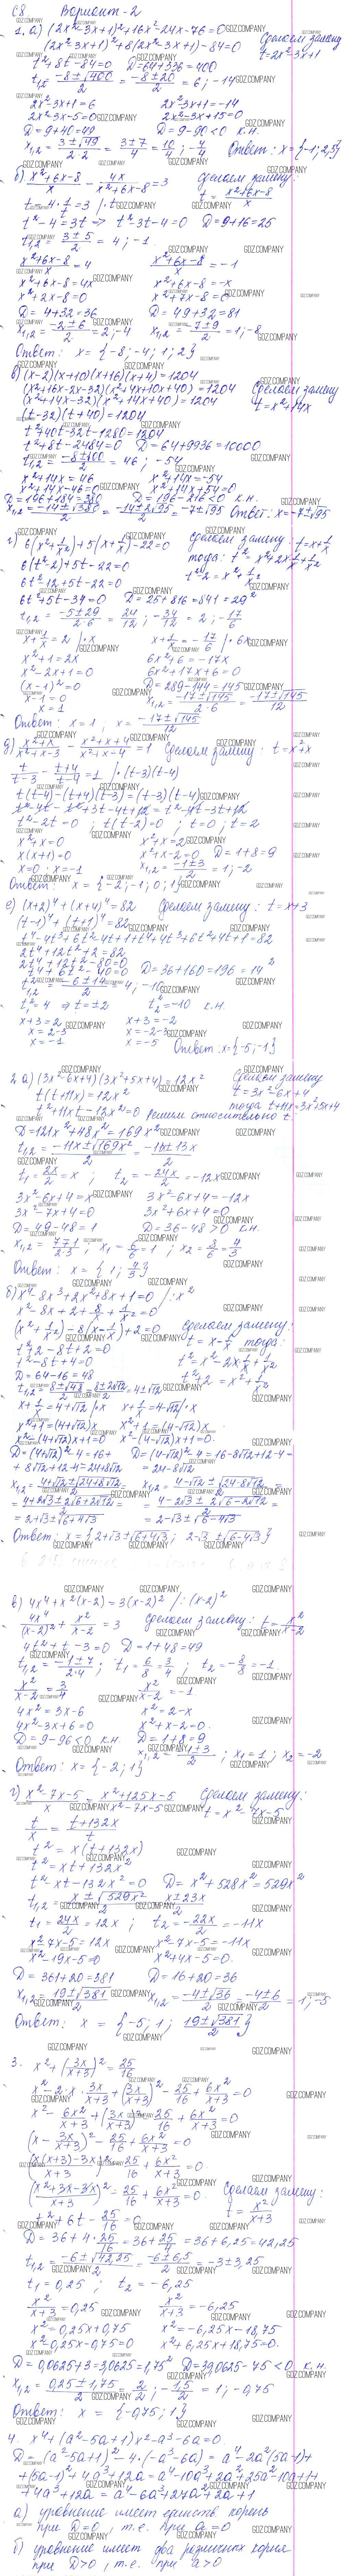 С8 Вариант-2
1. а) (2x²-3x+1)²+16x²-24x-76=0 Сделаем замену
(2x²-3x+1)²+8(2x²-3x+1)-84=0 t=2x²-3x+1
t²+8t-84=0 D=64+336=400
t1,2 = (-8±√400)/2 = (-8±20)/2 = 6; -14
2x²-3x+1=6 2x²-3x+1=-14
2x²-3x-5=0 2x²-3x+15=0
D=9+40=49 D=9-90<0 к.н.
x1,2 = (3±√49)/(2·2) = (3±7)/4 = 10/4; -4/4 Ответ: x={-1; 2,5}
б) (x²+6x-8)/x - 4x/(x²+6x-8) = 3 сделаем замену:
t - 4·1/t = 3 /·t t = (x²+6x-8)/x
t²-4=3t => t²-3t-4=0 D=9+16=25
t1,2 = (3±5)/2 = 4; -1.
(x²+6x-8)/x = 4 (x²+6x-8)/x = -1
x²+6x-8=4x x²+6x-8=-x
x²+2x-8=0 x²+7x-8=0
D=4+32=36 D=49+32=81
x1,2 = (-2±6)/2 = 2; -4 x1,2 = (-7±9)/2 = 1; -8
Ответ: x={-8; -4; 1; 2}
в) (x-2)(x+10)(x+16)(x+4)=1204
(x²+16x-2x-32)(x²+4x+10x+40)=1204 Сделаем замену
(x²+14x-32)(x²+14x+40)=1204 t=x²+14x
(t-32)(t+40)=1204
t²+40t-32t-1280=1204
t²+8t-2484=0 D=64+9936=10000
t1,2 = (-8±100)/2 = 46; -54
x²+14x=46 x²+14x=-54
x²+14x-46=0 x²+14x+54=0
D=196+184=380 D=196-216<0 к.н.
x1,2 = (-14±√380)/2 = (-14±2√95)/2 = -7±√95 Ответ: x=-7±√95
г) 6(x²+1/x²)+5(x+1/x)-22=0 сделаем замену: t=x+1/x
6(t²-2)+5t-22=0 тогда: t²=x²+2x·1/x+1/x²
6t²-12+5t-22=0 t²-2=x²+1/x²
6t²+5t-34=0 D=25+816=841=29²
t1,2 = (-5±29)/(2·6) = 24/12; -34/12 = 2; -17/6
x+1/x=2 /·x x+1/x=-17/6 /·6x
x²+1=2x 6x²+6=-17x
x²-2x+1=0 6x²+17x+6=0
(x-1)²=0 D=289-144=145
x-1=0 x1,2 = (-17±√145)/(2·6) = (-17±√145)/12
x=1
Ответ: x=1, x=(-17±√145)/12
д) (x²+x)/(x²+x-3) - (x²+x+4)/(x²+x-4) = 1 Сделаем замену: t=x²+x
t/(t-3) - (t+4)/(t-4) = 1 /·(t-3)(t-4)
t(t-4)-(t+4)(t-3)=(t-3)(t-4)
t²-4t-t²+3t-4t+12=t²-4t-3t+12
t²-2t=0; t(t-2)=0; t=0; t=2
x²+x=0 x²+x=2
x(x+1)=0 x²+x-2=0 D=1+8=9
x=0 x=-1 x1,2 = (-1±3)/2 = 1; -2
Ответ: x={-2; -1; 0; 1}
е) (x+2)⁴+(x+4)⁴=82 Сделаем замену: t=x+3
(t-1)⁴+(t+1)⁴=82
t⁴-4t³+6t²-4t+1+t⁴+4t³+6t²+4t+1=82
2t⁴+12t²+2=82
2t⁴+12t²-80=0
t⁴+6t²-40=0 D=36+160=196=14²
t²1,2 = (-6±14)/2 = 4; -10
t1²=4 => t=±2 t2²=-10 к.н.
x+3=2 x+3=-2
x=2-3 x=-2-3
x=-1 x=-5 Ответ: x={-5; -1}
2. а) (3x²-6x+4)(3x²+5x+4)=12x² Сделаем замену
t(t+11x)=12x² t=3x²-6x+4
t²+11xt-12x²=0 решим относительно t. тогда t+11x=3x²+5x+4
D=121x²+48x²=169x²
t1,2 = (-11x±√169x²)/2 = (-11x±13x)/2
t1=2x/2=x; t2=-24x/2=-12x
3x²-6x+4=x 3x²-6x+4=-12x
3x²-7x+4=0 3x²+6x+4=0
D=49-48=1 D=36-48>0 к.н.
x1,2 = (7±1)/(2·3); x1=6/6=1; x2=8/6=4/3
Ответ: x={1; 4/3}
б) x⁴-8x³+2x²+8x+1=0 /:x²
x²-8x+2+8/x+1/x²=0
(x²+1/x²)-8(x-1/x)+2=0 сделаем замену:
t²+2-8t+2=0 t=x-1/x тогда:
t²-8t+4=0 t²=x²-2x·1/x+1/x²
D=64-16=48 t²+2=x²+1/x²
t1,2 = (8±√48)/2 = (8±2√12)/2 = 4±√12
x+1/x=4+√12 /·x x+1/x=4-√12 /·x
x²+1=(4+√12)x x²+1=(4-√12)x
x²-(4+√12)x+1=0 x²-(4-√12)x+1=0.
D=(4+√12)²-4=16+ D=(4-√12)²-4=16-8√12+12-4=
+8√12+12-4=24+8√12 =24-8√12
x1,2 = (4+√12±√(24+8√12))/2 = x1,2 = (4-√12±√(24-8√12))/2 =
= (4+2√3±2√(6+2√12))/2 = = (4-2√3±2√(6-2√12))/2 =
= 2+√3±√(6+4√3) = 2-√3±√(6-4√3)
Ответ: x={2+√3±√(6+4√3); 2-√3±√(6-4√3)}
в) 4x⁴+x²(x-2)=3(x-2)² /:(x-2)²
4x⁴/(x-2)² + x²/(x-2) = 3 сделаем замену: t=x²/(x-2)
4t²+t-3=0 D=1+48=49
t1,2 = (-1±7)/(2·4); t1=6/8=3/4; t2=-8/8=-1.
x²/(x-2)=3/4 x²/(x-2)=-1
4x²=3x-6 x²=2-x
4x²-3x+6=0 x²+x-2=0.
D=9-96<0 к.н. D=1+8=9
x1,2 = (-1±3)/2; x1=1; x2=-2
Ответ: x={-2; 1}
г) (x²-7x-5)/x = (x²+125x-5)/(x²-7x-5) Сделаем замену:
t/x = (t+132x)/t t=x²-7x-5
t²=x(t+132x)
t²=xt+132x²
t²-xt-132x²=0 D=x²+528x²=529x²
t1,2 = (x±√529x²)/2 = (x±23x)/2
t1=24x/2=12x; t2=-22x/2=-11x
x²-7x-5=12x x²-7x-5=-11x
x²-19x-5=0 x²+4x-5=0.
D=361+20=381 D=16+20=36
x1,2 = (19±√381)/2 x1,2 = (-4±√36)/2 = (-4±6)/2 = 1; -5
Ответ: x={-5; 1; (19±√381)/2}
3. x²+(3x/(x+3))²=25/16
x²-2·x·3x/(x+3)+(3x/(x+3))²-25/16+6x²/(x+3)=0
x²-6x²/(x+3)+(3x/(x+3))²-25/16+6x²/(x+3)=0
(x-3x/(x+3))²-25/16+6x²/(x+3)=0
((x(x+3)-3x)/(x+3))²-25/16+6x²/(x+3)=0
((x²+3x-3x)/(x+3))²-25/16+6x²/(x+3)=0. Сделаем замену:
t²+6t-25/16=0 t=x²/(x+3)
D=36+4·25/16=36+25/4=36+6,25=42,25
t1,2 = (-6±√42,25)/2 = (-6±6,5)/2 = -3±3,25
t1=0,25; t2=-6,25
x²/(x+3)=0,25 x²/(x+3)=-6,25
x²=0,25x+0,75 x²=-6,25x-18,75
x²-0,25x-0,75=0 x²+6,25x+18,75=0.
D=0,0625+3=3,0625=1,75² D=39,0625-75<0 к.н.
x1,2 = (0,25±1,75)/2 = 2/2; -1,5/2 = 1; -0,75
Ответ: x={-0,75; 1}
4. x⁴+(a²-5a+1)x²-a³-6a=0.
D=(a²-5a+1)²-4·(-a³-6a)=a⁴-2a²(5a-1)+
+(5a-1)²+4a³+12a=a⁴-10a³+2a²+25a²-10a+1+
+4a³+12a=a⁴-6a³+27a²+2a+1
а) уравнение имеет единств. корень
при D=0, т.е. при a=0
б) уравнение имеет два различных корня
при D>0, т.е. при a>0